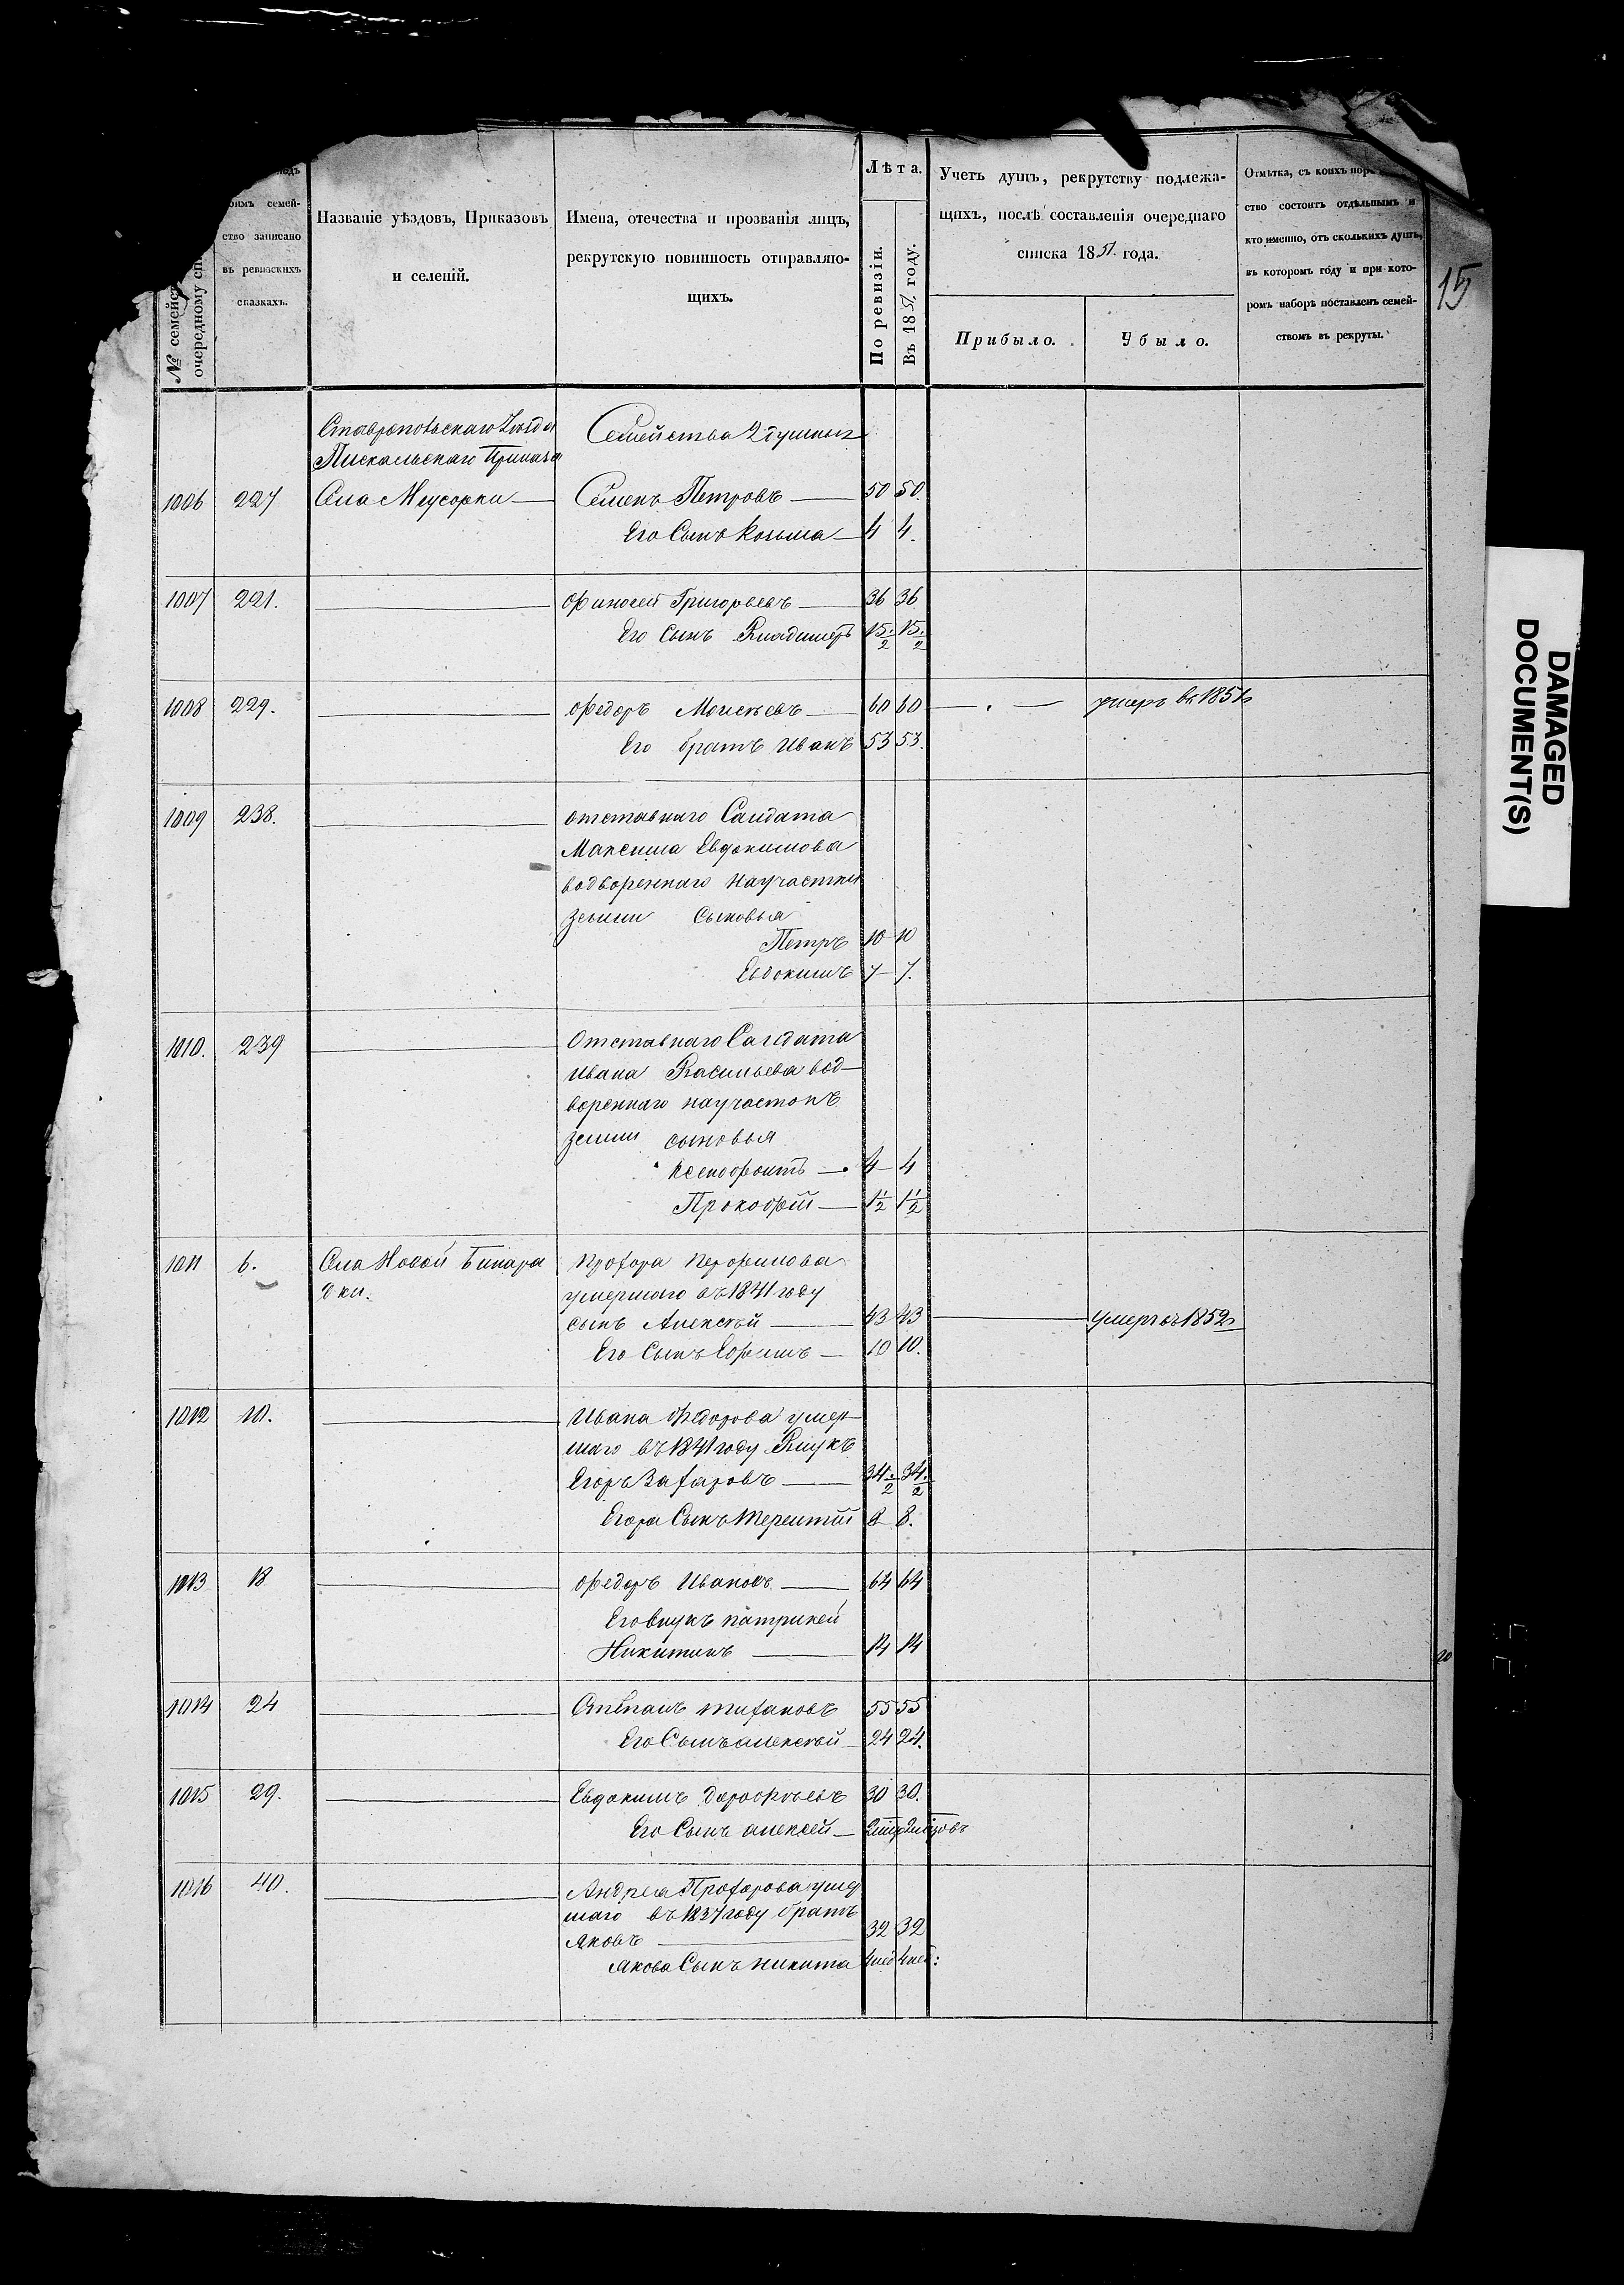 15
№ семейст
очередному сп
подъ
оимъ семей-
ство записано
въ ревизскихъ
сказкахъ.
Названіе уѣздовъ, Приказовъ
и селеній.
Имена, отечества и прозванія лицъ,
рекрутскую повинность отправляю-
щихъ.
Лѣта.
По ревизіи.
Въ 1851 году.
Учетъ душъ, рекрутству подлежа-
щихъ, послѣ составленія очереднаго
списка 1851 года.
Прибыло.
Убыло.
Отмѣтка, съ коихъ пор
ство состоитъ отдѣльнымъ и
кто именно, отъ сколькихъ душъ,
въ которомъ году и при кото-
ромъ наборѣ поставленъ семей-
ствомъ въ рекруты.
Ставропольскаго Уѣзда
Пискальскаго Приказа
Семейства 2 душныя
1006 227 Села Мусорки Семенъ Петровъ 50 50
Его Сынъ Козьма 4 4.
1007 221. Финогей Григорьевъ 36 36
Его Сынъ Владимеръ 15½ 15½
1008 229. Федоръ Моисеевъ 60 60 умеръ въ 1851г
Его братъ Иванъ 53 53.
1009 238. отставнаго Салдата
Максима Евдокимова
водвореннаго научастки
земли Сыновья
Петръ 10 10
Евдокимъ 7 7.
1010. 239 Отставнаго Салдата
Ивана Васильева вод-
вореннаго научастокъ
земли сыновья
Ксенофонтъ 4 4
Прокофій 1½ 1½
1011 6. Села Новой Бинара
дки.
Прохора
умершаго въ 1841 году
сынъ Алексѣй 43 43 умеръ въ 1852г
Его Сынъ Ефимъ 10 10.
1012 10. Ивана Федорова умер-
шаго въ 1841 году Внукъ
Егоръ Захаровъ 34½ 34½
Егора Сынъ Терентій 8 8.
1013 18 Федоръ Ивановъ 64 64
Его внукъ Патрикей
Никитинъ 14 14
20
1014 24 Степанъ Тихановъ 55 55
Его Сынъ алексѣй 24 24.
1015 29. Евдокимъ Дорофѣевъ 30 30.
Его Сынъ алексей
1016 40. Андрея Прохорова умер
шаго въ 1837 году братъ
Яковъ 32 32
Якова Сынъ Никита 4 нед 4 нед:
DAMAGED
DOCUMENT(S)